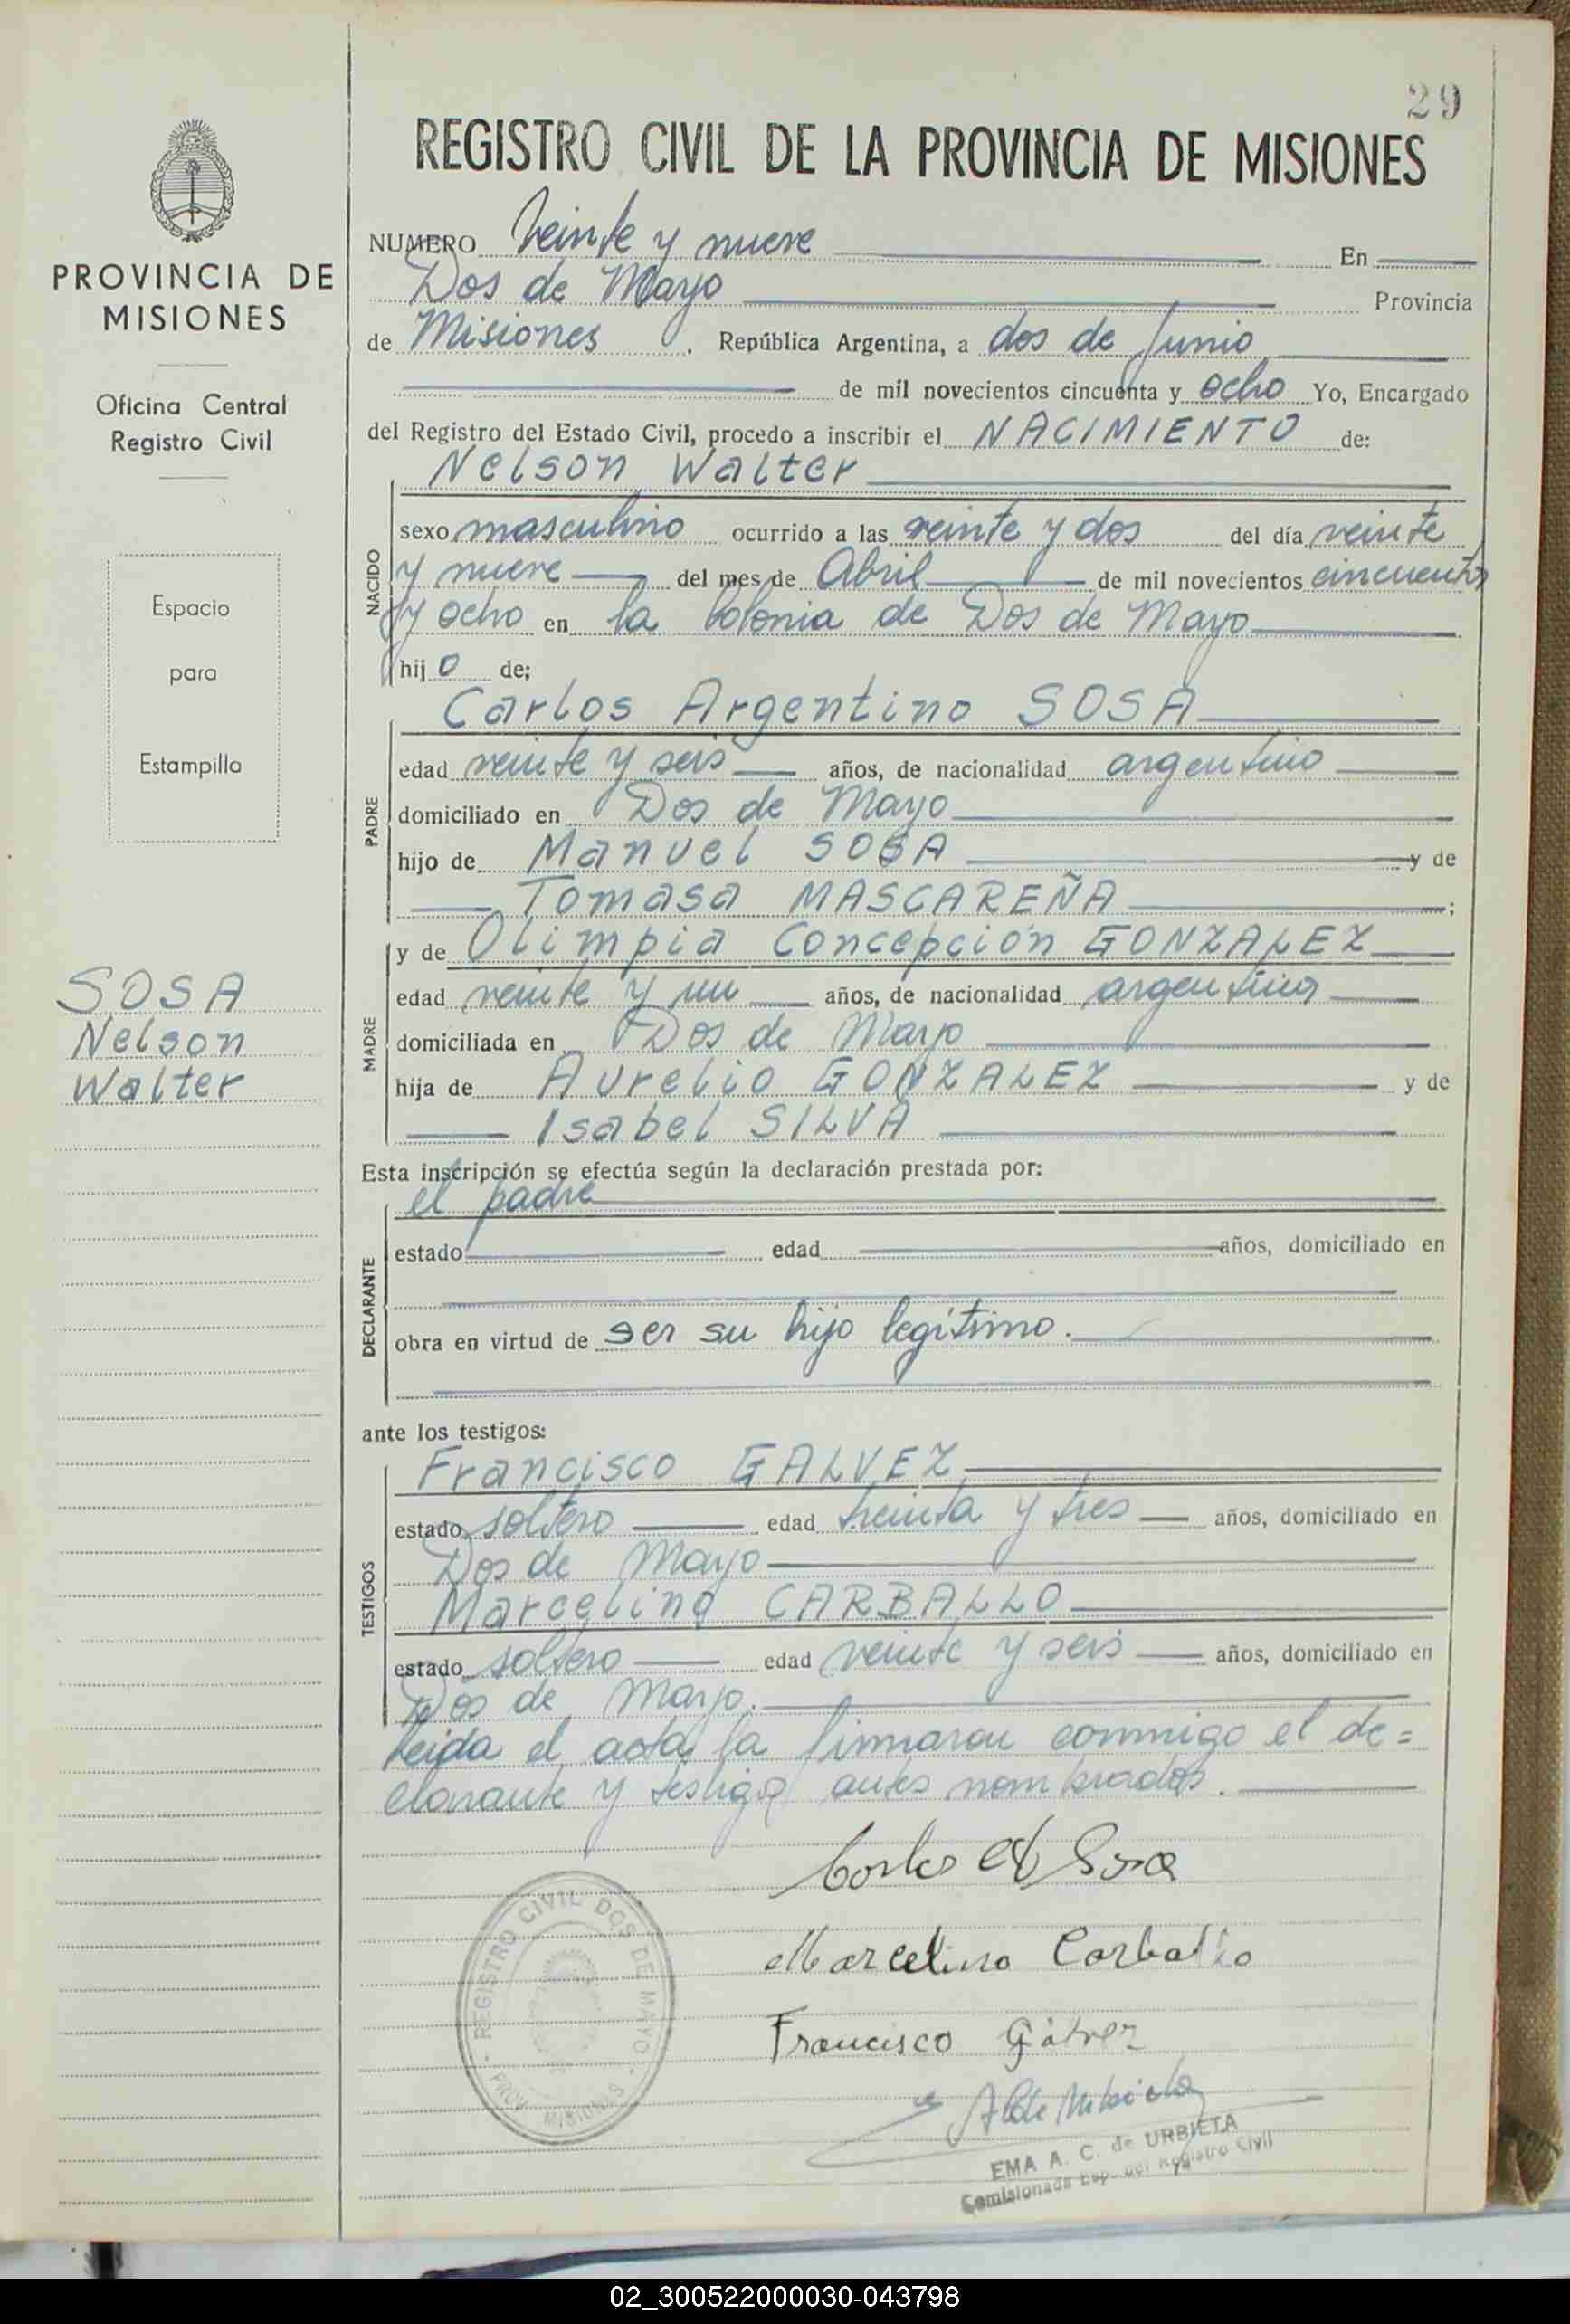 29
REGISTRO CIVIL DE LA PROVINCIA DE MISIONES
PROVINCIA DE
MISIONES
Oficina Central
Registro Civil
Espacio
para
Estampilla
SOSA
Nelson
Walter
NUMERO Veinte y nueve En
Dos de Mayo Provincia
de Misiones . República Argentina, a dos de Junio
de mil novecientos cincuenta y ocho Yo, Encargado
del Registro del Estado Civil, procedo a inscribir el NACIMIENTO de:
Nelson Walter
NACIDO
sexo masculino ocurrido a las veinte y dos del día veinte
y nueve del mes de Abril de mil novecientos cincuenta
y ocho en la Colonia de Dos de Mayo
hijo de;
Carlos Argentino SOSA
PADRE
edad veinte y seis años, de nacionalidad argentino
domiciliado en Dos de Mayo
hijo de Manuel SOSA y de
Tomasa MASCAREÑA ;
y de Olimpia Concepción GONZALEZ
MADRE
edad veinte y un años, de nacionalidad argentina
domiciliada en Dos de Mayo
hija de Aurelio GONZALEZ y de
Isabel SILVA
Esta inscripción se efectúa según la declaración prestada por:
el padre
DECLARANTE
estado edad años, domiciliado en
obra en virtud de ser su hijo legítimo.
ante los testigos:
Francisco GALVEZ
TESTIGOS
estado soltero edad treinta y tres años, domiciliado en
Dos de Mayo
Marcelino CARBALLO
estado soltero edad veinte y seis años, domiciliado en
Dos de Mayo.
Leida el acta la firmaron conmigo el de=
clarante y testigos antes nombrados.
Carlos A Sosa
Marcelino Carballo
Francisco Gálvez
REGISTRO CIVIL DOS DE MAYO
PROV. MISIONES
EMA A. C. de URBIETA
Comisionada Esp. del Registro Civil
02_300522000030-043798